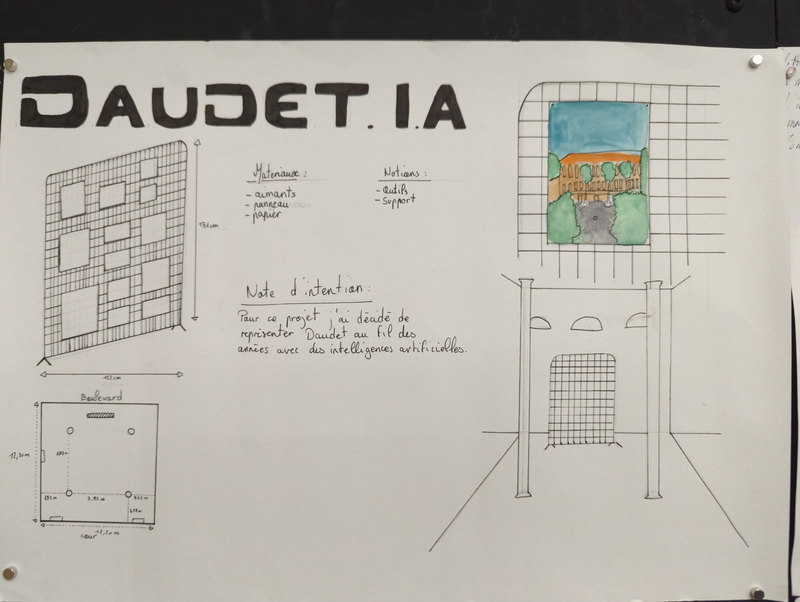 DAUDET. I.A
Materiaux :
- aimants
- panneau
- papier
Notions :
- outils
- support
Note d'intention :
Pour ce projet j'ai décidé de
représenter Daudet au fil des
années avec des intelligences artificielles.
Boulevard
12,20 m
cour